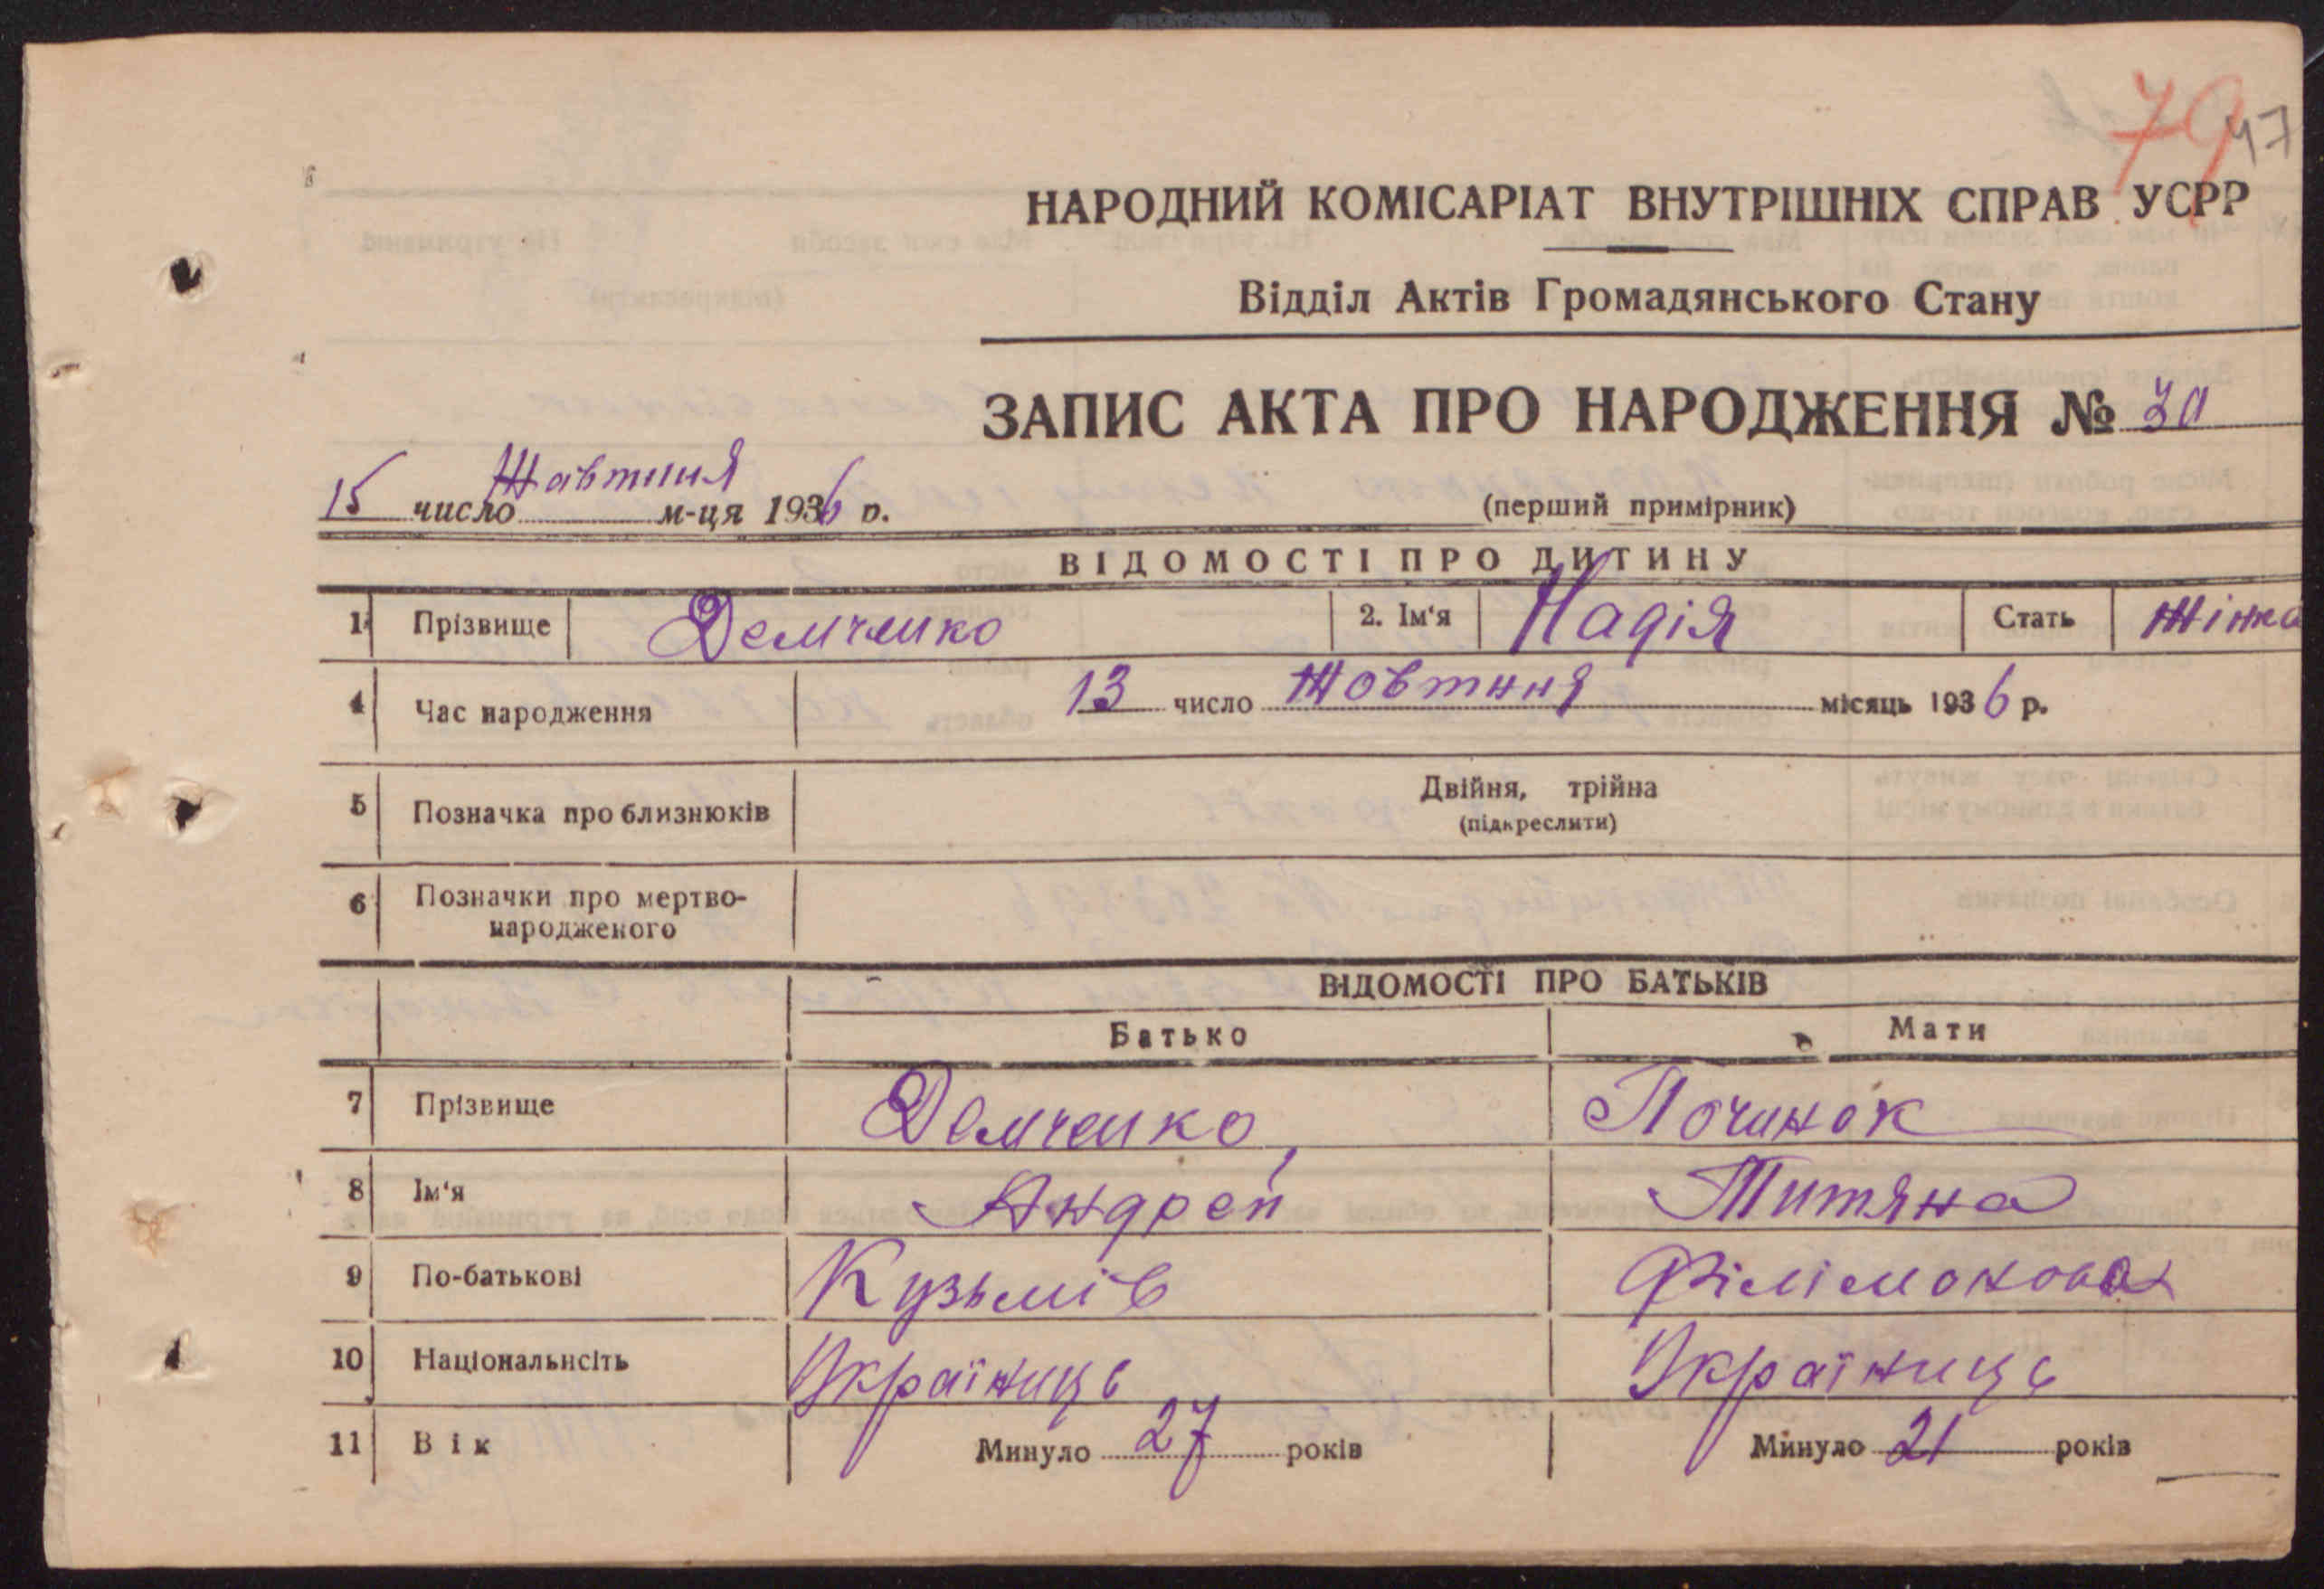 79 47
НАРОДНИЙ КОМІСАРІАТ ВНУТРІШНІХ СПРАВ УСРР
Відділ Актів Громадянського Стану
ЗАПИС АКТА ПРО НАРОДЖЕННЯ № 30
15 число Жавтння м-ця 1936 р.
(перший примірник)
ВІДОМОСТІ ПРО ДИТИНУ
1 Прізвище Демченко 2. Ім'я Надія Стать Жінка
4 Час народження 13 число Жовтння місяць 1936 р.
5 Позначка про близнюків Двійня, трійна
(підкреслити)
6 Позначки про мертво-
народженого
ВІДОМОСТІ ПРО БАТЬКІВ
Батько Мати
7 Прізвище Демченко Починок
8 Ім'я Андрей Титяна
9 По-батькові Кузьмів Філімонова
10 Національнсіть Українць Українць
11 Вік Минуло 27 років Минуло 21 років